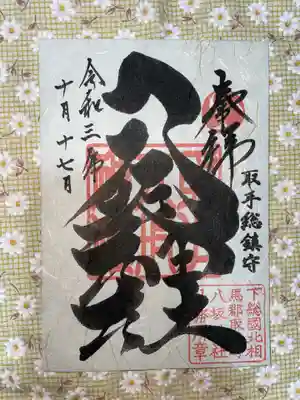 奉拝
取手総鎮守
八坂神社
令和三年
十月十七日
下総國北相
馬郡取
八坂神社
章